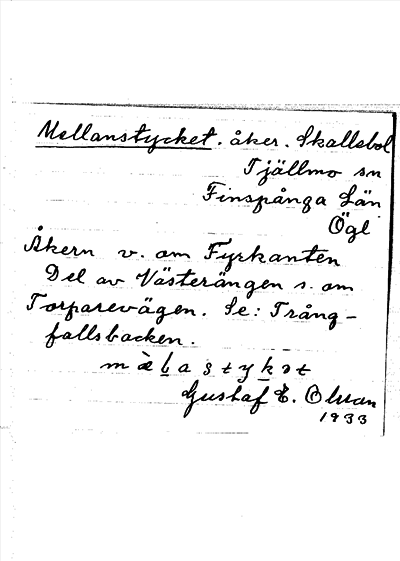 Mellanstycket. åker. Skallebol
Tjällmo sn
Finspånga Län
Ögl
Åkern v. om Fyrkanten
Del av Västerängen s. om
Torparevägen. Se: Trång-
fallsbacken.
Gustaf E. Olsson
1933